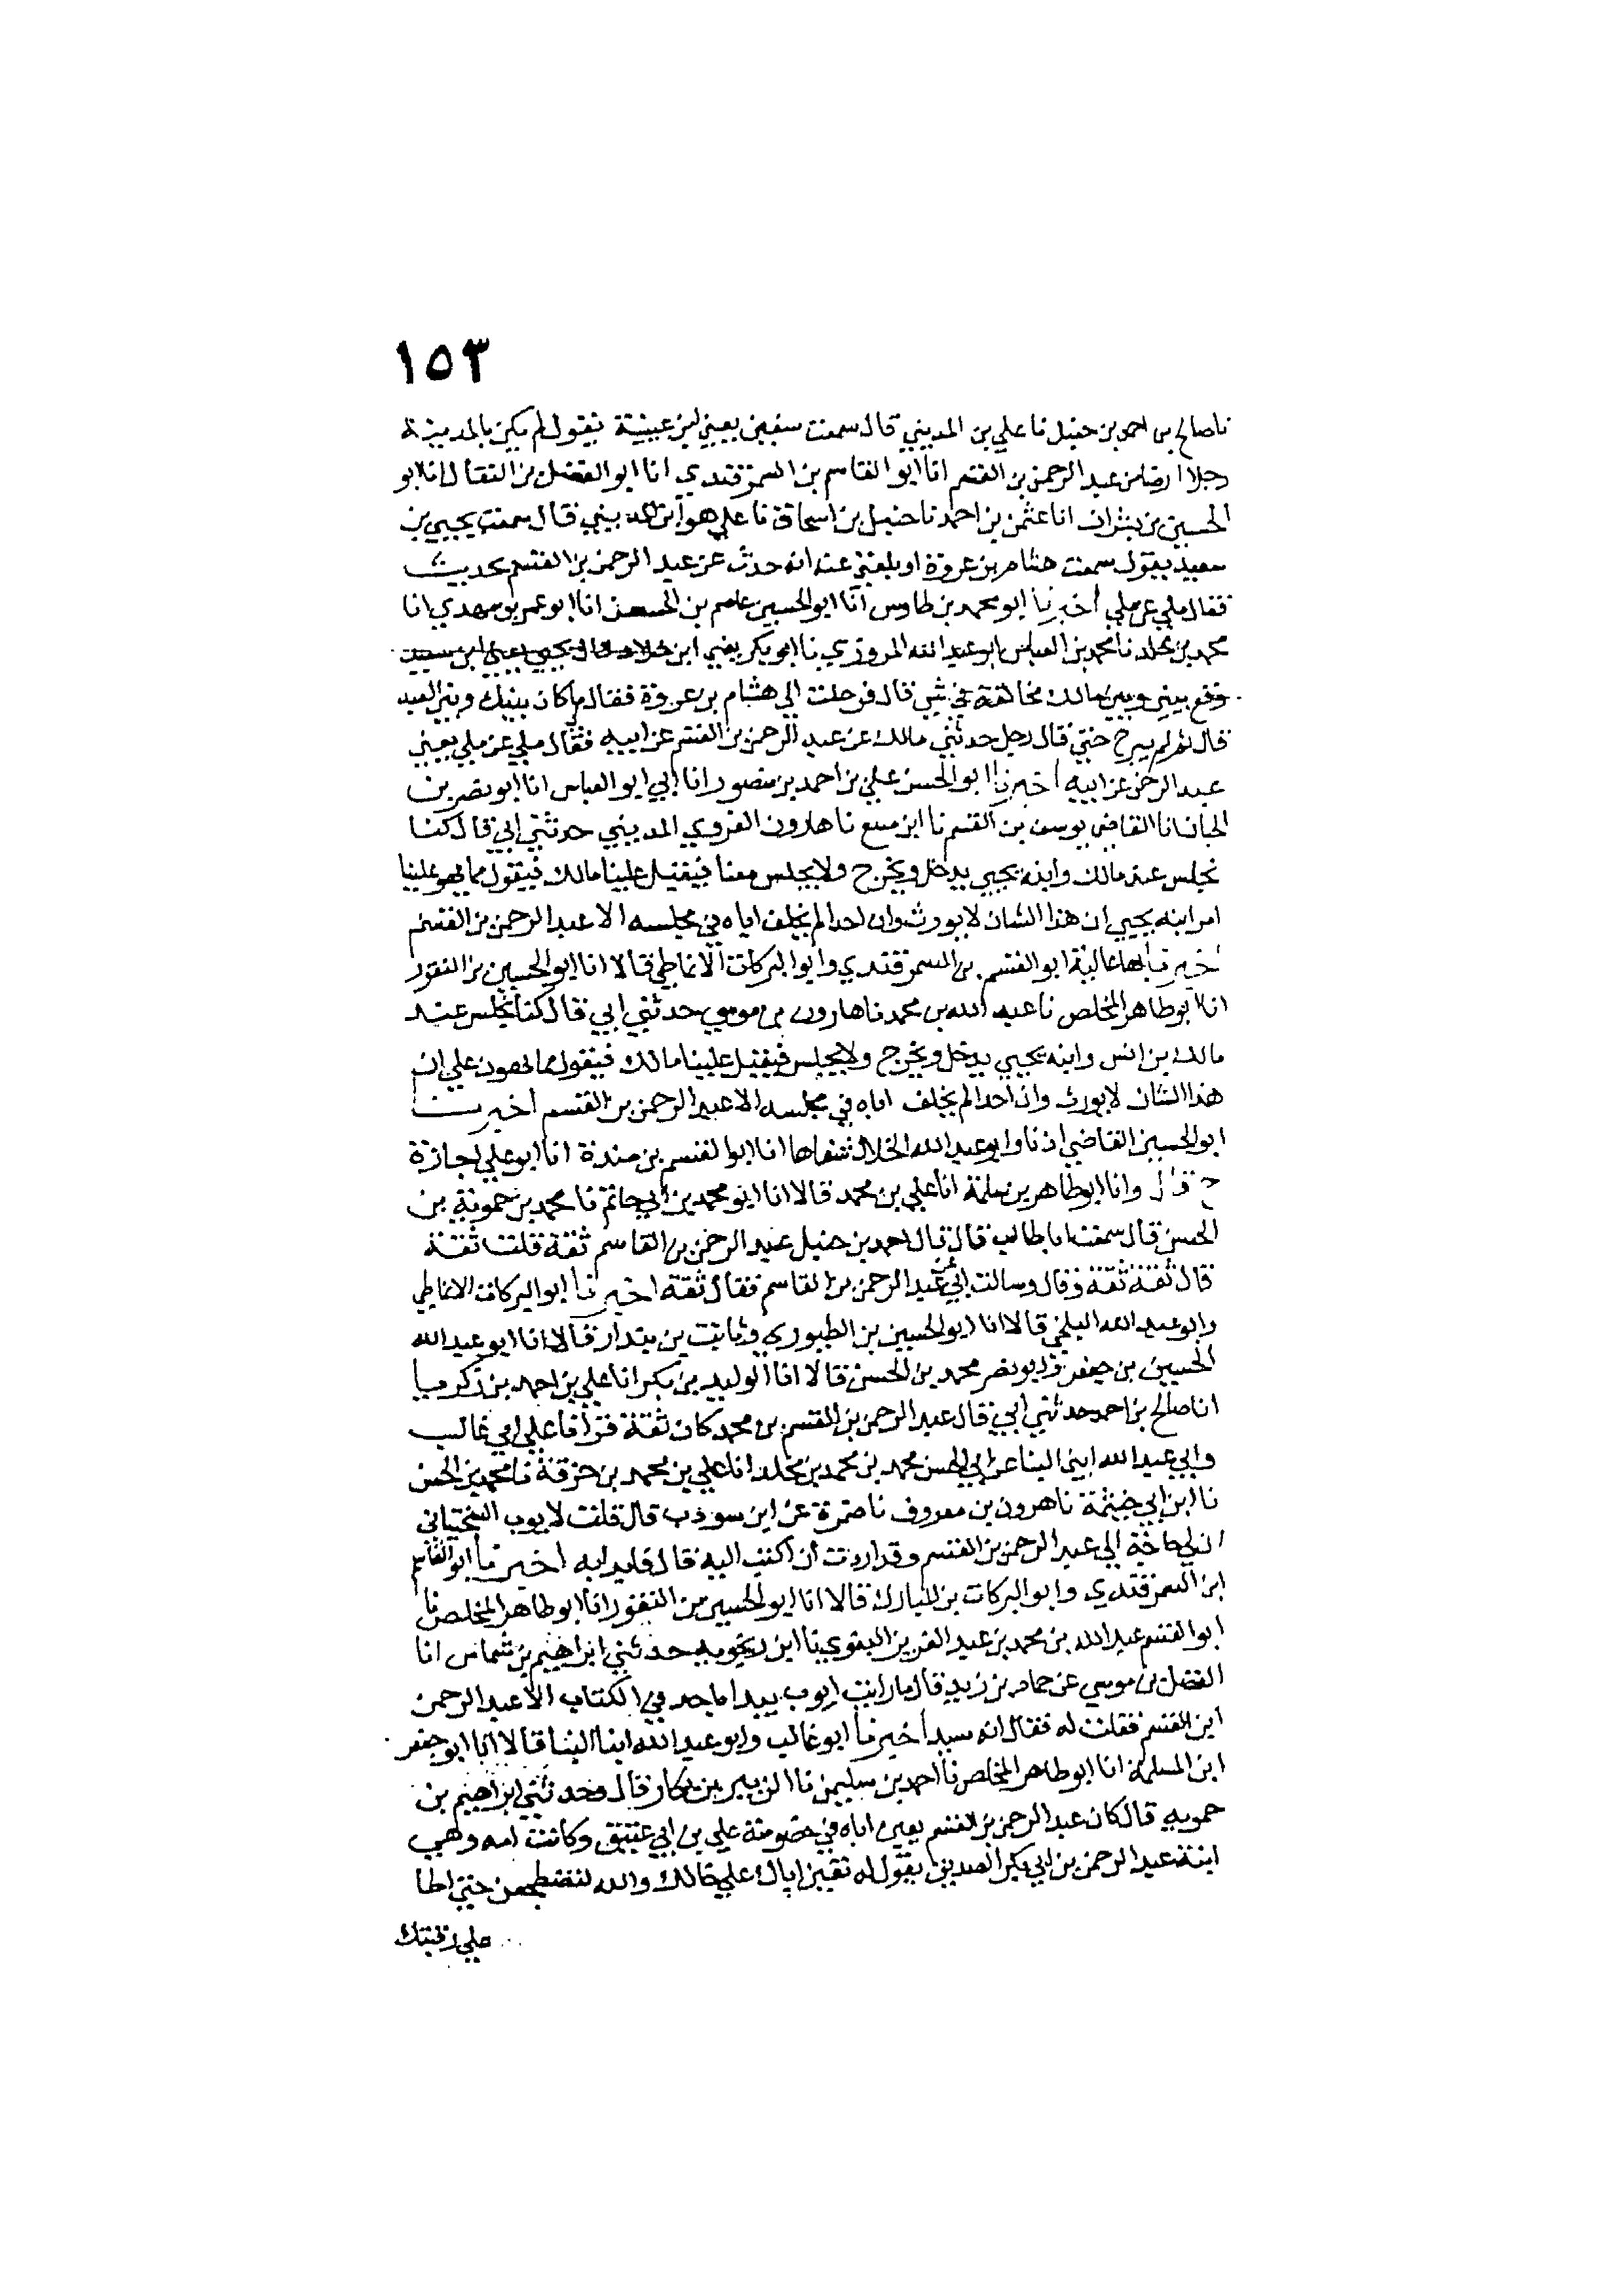 ١٥٣
نا صالح بن احمد بن حنبل نا علي بن المديني قال سمعت سفين يعني ابن عيينة يقول لم يكن بالمدينة
رجلا ارضا من عبد الرحمن بن القسم انا ابو القاسم بن السمرقندي انا ابو الفضل بن البقال انا ابو
الحسين بن بشران انا عثمن بن احمد نا حنبل بن اسحاق نا علي هو ابن المديني قال سمعت يحيي بن
سعيد يقول سمعت هشام بن عروة او بلغني عنه انه حدث عن عبد الرحمن بن القسم بحديث
فقال ملي عن ملي أخبرنا ابو محمد بن طاوس انا ابو الحسين عاصم بن الحسن انا ابو عمر بن مهدي انا
محمد بن مخلد نا محمد بن العباس ابو عبد الله المروزي نا ابو بكر يعني ابن خلاد قال يحيي يعني ابن سعيد
وقع بيني وبين مالك مخالفة في شي قال فرحلت الي هشام بن عروة فقال ما كان بينك وبين العبد
قال ثم لم يبرح حتي قال رجل حدثني مالك عن عبد الرحمن بن القسم عن ابيه فقال ملي عن ملي يعني
عبد الرحمن عن ابيه أخبرنا ابو الحسن علي بن احمد بن منصور انا ابي ابو العباس انا ابو نصر بن
الجبان انا القاضي يوسف بن القسم نا ابن منيع نا هارون الفروي المديني حدثني ابي قال كنا
نجلس عند مالك وابنه يحيي يدخل ويخرج ولا يجلس معنا فيقبل علينا مالك فيقول مما يهو علينا
امر ابنه يحيي ان هذا الشان لا يورث وان احدا لم يخلف اباه في مجلسه الا عبد الرحمن بن القسم
أخبرناها عالية ابو القسم بن السمرقندي وابو البركات الانماطي قالا انا ابو الحسين بن النقور
انا ابو طاهر المخلص نا عبد الله بن محمد نا هارون بن موسي حدثني ابي قال كنا نجلس عند
مالك بن انس وابنه يحيي يدخل ويخرج ولا يجلس فيقبل علينا مالك فيقول مما يهون علي ان
هذا الشان لا يورث وان احدا لم يخلف اباه في مجلسه الا عبد الرحمن بن القسم أخبرنا
ابو الحسين القاضي اذنا وابو عبد الله الخلال شفاها انا ابو القسم بن مندة انا ابو علي اجازة
ح قال وانا ابو طاهر بن سلمة انا علي بن محمد قالا انا ابو محمد بن ابي حاتم نا محمد بن حموية بن
الحسن قال سمعت ابا طالب قال قال احمد بن حنبل عبد الرحمن بن القاسم ثقة قلت ثقة
قال ثقة ثقة وقال وسالت ابي عن عبد الرحمن بن القاسم فقال ثقة أخبرنا ابو البركات الانماطي
وابو عبد الله البلخي قالا انا ابو الحسين بن الطيوري وثابت بن بندار قالا انا ابو عبد الله
الحسين بن جعفر وابو نصر محمد بن الحسن قالا انا الوليد بن بكر انا علي بن احمد بن زكريا
انا صالح بن احمد حدثني ابي قال عبد الرحمن بن القسم بن محمد كان ثقة قرأنا علي ابي غالب
وابي عبد الله ابني البنا عن ابي الحسن محمد بن محمد بن مخلد انا علي بن محمد بن خزفة نا محمد بن الحسن
نا ابن ابي خيثمة نا هرون بن معروف نا ضمرة عن ابن سوذب قال قلت لايوب السختياني
ان لي حاجة الي عبد الرحمن بن القسم وقد اردت ان اكتب اليه قال فابد ابه أخبرنا ابو القاسم
ابن السمرقندي وابو البركات بن المبارك قالا انا ابو الحسين بن النقور انا ابو طاهر المخلص نا
ابو القسم عبد الله بن محمد بن عبد العزيز البغوي نا ابن زنجويه حدثني ابراهيم بن شماس انا
الفضل بن موسي عن حماد بن زيد قال ما رايت ايوب يبدا باحد في الكتاب الا عبد الرحمن
ابن القسم فقلت له فقال انه سيد أخبرنا ابو غالب وابو عبد الله ابنا البنا قالا انا ابو جعفر
ابن المسلمة انا ابو طاهر المخلص نا احمد بن سليمن نا الزبير بن بكار قال وحدثني ابراهيم بن
حمويه قال كان عبد الرحمن بن القسم يعين اباه في خصومة علي بن ابي عتيق وكانت امه وهي
ابنة عبد الرحمن بن ابي بكر الصديق يقول له تعين اباك علي خالك والله لتضطجعن حتي اطا
علي رقبتك